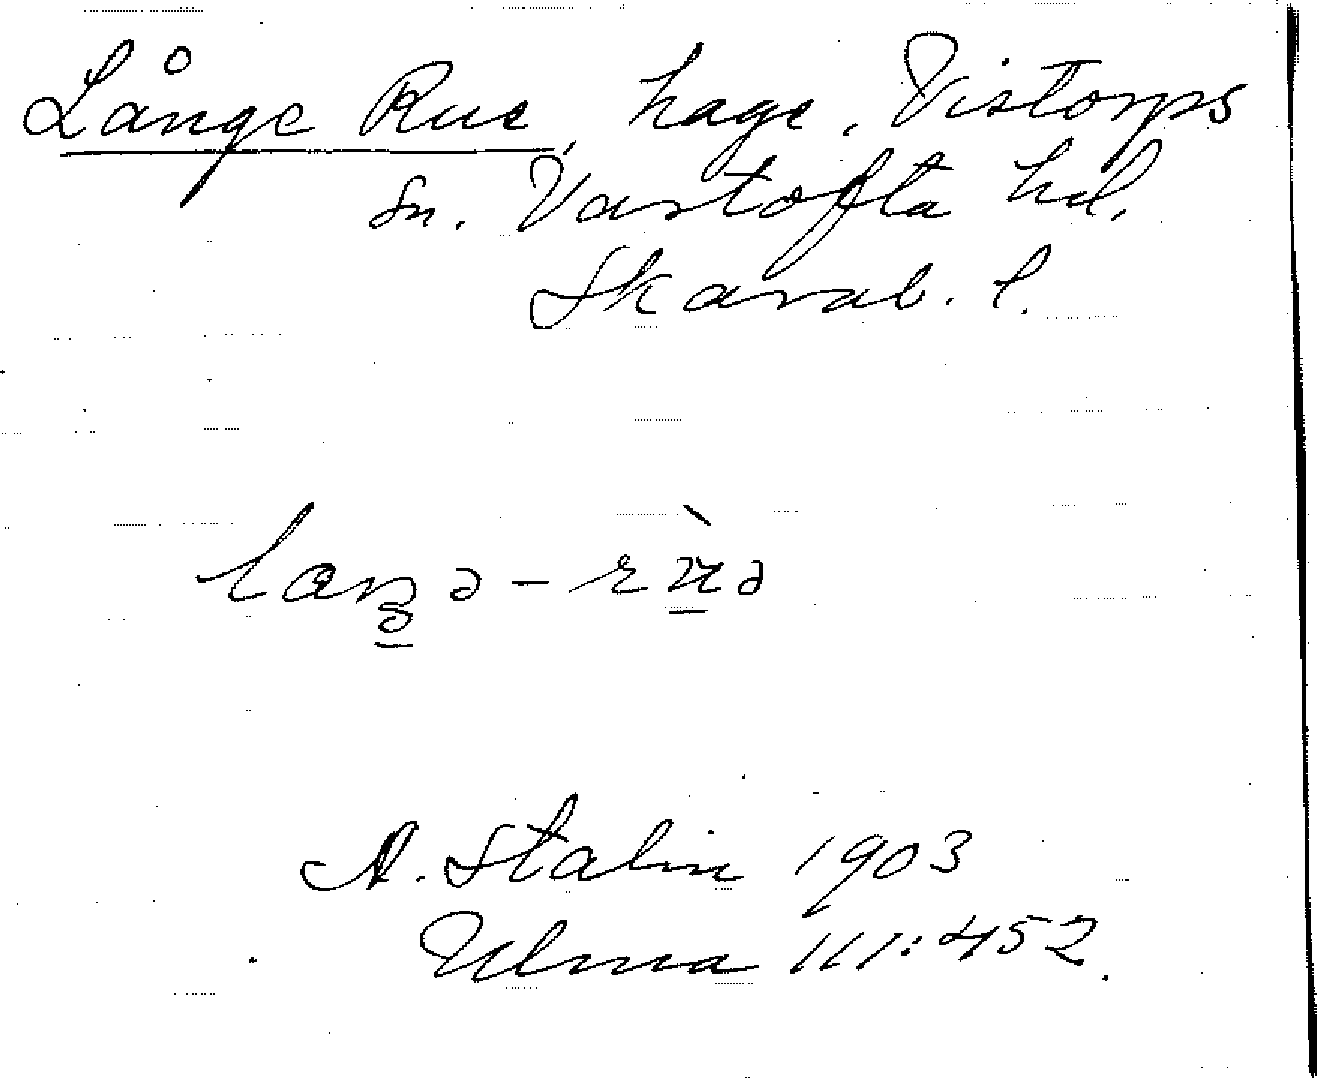 Långe Rue, hage, Vistorps
sn. Vartofta hd.
Skarab. l.
laŋə-rùə
A. Stalin 1903
Ulma 111:452.